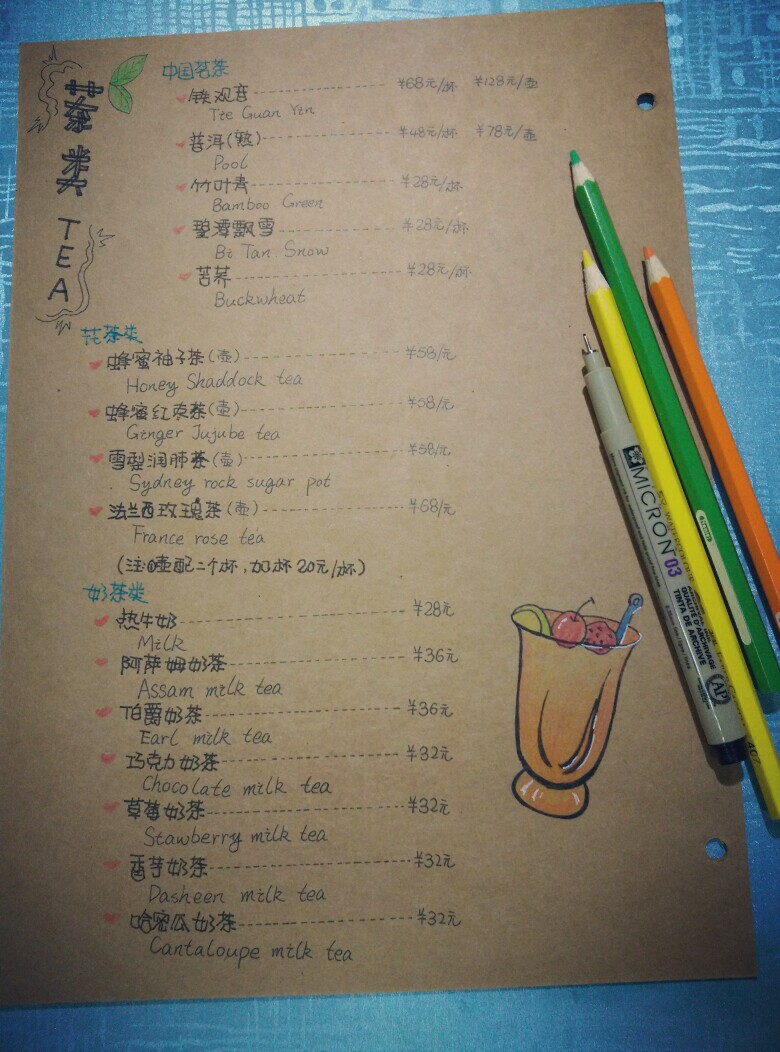 茶类 TEA
中国茗茶
铁观音 ¥68元/杯 ¥128元/壶
Tie Guan Yin
普洱(熟) ¥48元/杯 ¥78元/壶
Pool
竹叶青 ¥28元/杯
Bamboo Green
碧潭飘雪 ¥28元/杯
Bi Tan. Snow
苦荞 ¥28元/杯
Buckwheat
花茶类
蜂蜜柚子茶(壶) ¥58/元
Honey Shaddock tea
蜂蜜红枣茶(壶) ¥58/元
Ginger Jujube tea
雪梨润肺茶(壶) ¥58/元
Sydney rock sugar pot
法兰西玫瑰茶(壶) ¥68/元
France rose tea
(注:壶配二个杯,加杯20元/杯)
奶茶类
热牛奶 ¥28元
Milk
阿萨姆奶茶 ¥36元
Assam milk tea
伯爵奶茶 ¥36元
Earl milk tea
巧克力奶茶 ¥32元
Chocolate milk tea
草莓奶茶 ¥32元
Stawberry milk tea
香芋奶茶 ¥32元
Dasheen milk tea
哈密瓜奶茶 ¥32元
Cantaloupe milk tea
MICRON 03
QUALITÉ D'ARCHIVAGE
TINTA DE ARCHIVE
AP